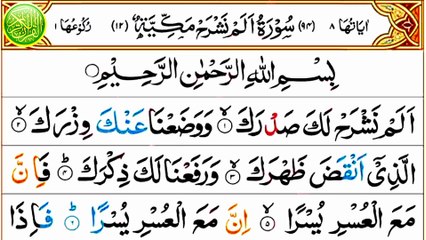 اٰیَاتُهَا ۸ (۹۴) سُوْرَةُ اَلَمْ نَشْرَحْ مَكِّیَّةٌ (۱۲) رُكُوْعُهَا ۱
بِسْمِ اللّٰهِ الرَّحْمٰنِ الرَّحِیْمِ
اَلَمْ نَشْرَحْ لَكَ صَدْرَكَ ۙ۱ وَوَضَعْنَا عَنْكَ وِزْرَكَ ۙ۲
الَّذِیْۤ اَنْقَضَ ظَهْرَكَ ۙ۳ وَرَفَعْنَا لَكَ ذِكْرَكَ ؕ۴ فَاِنَّ
مَعَ الْعُسْرِ یُسْرًا ۙ۵ اِنَّ مَعَ الْعُسْرِ یُسْرًا ؕ۶ فَاِذَا